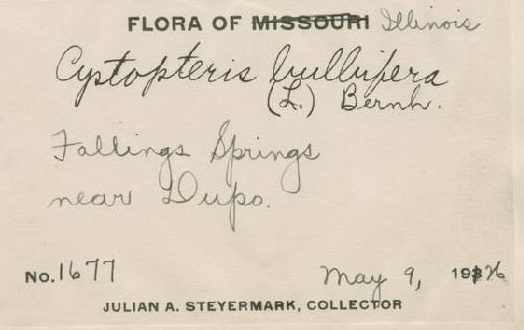 FLORA OF MISSOURI Illinois
Cystopteris bulbifera
(L.) Bernh.
Fallings Springs
near Dupo.
No. 1677 May 9, 1926
JULIAN A. STEYERMARK, COLLECTOR